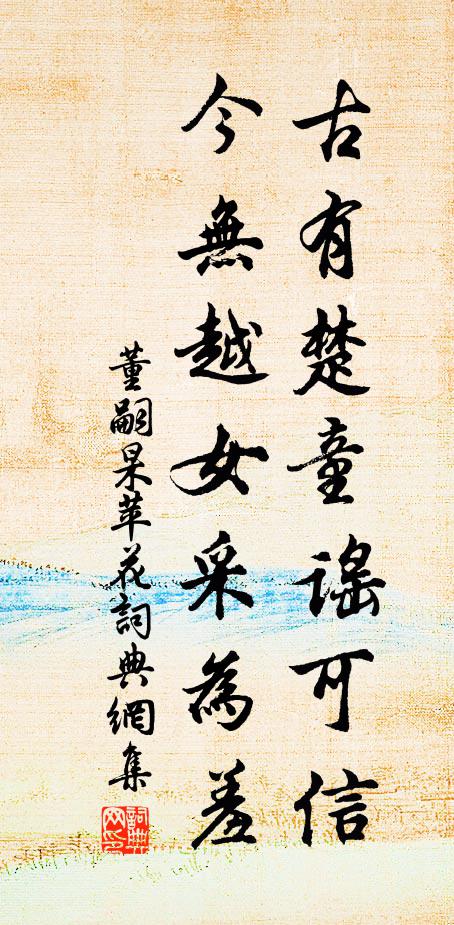 古有楚童謠可信
今無越女采為羞
董嗣杲苹花詞典網集
詞典網印